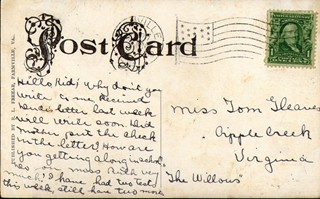 Post Card
Hello Kid! Why don't you
write to me. Received
letter last week
will write soon. Did
mother put the check
in the letter? How are
you getting along in school.
miss Ruth very
much? I have had two tests
this week, still have two more
Miss Tom Gleaves
Cripple Creek
Virginia
"The Willows"